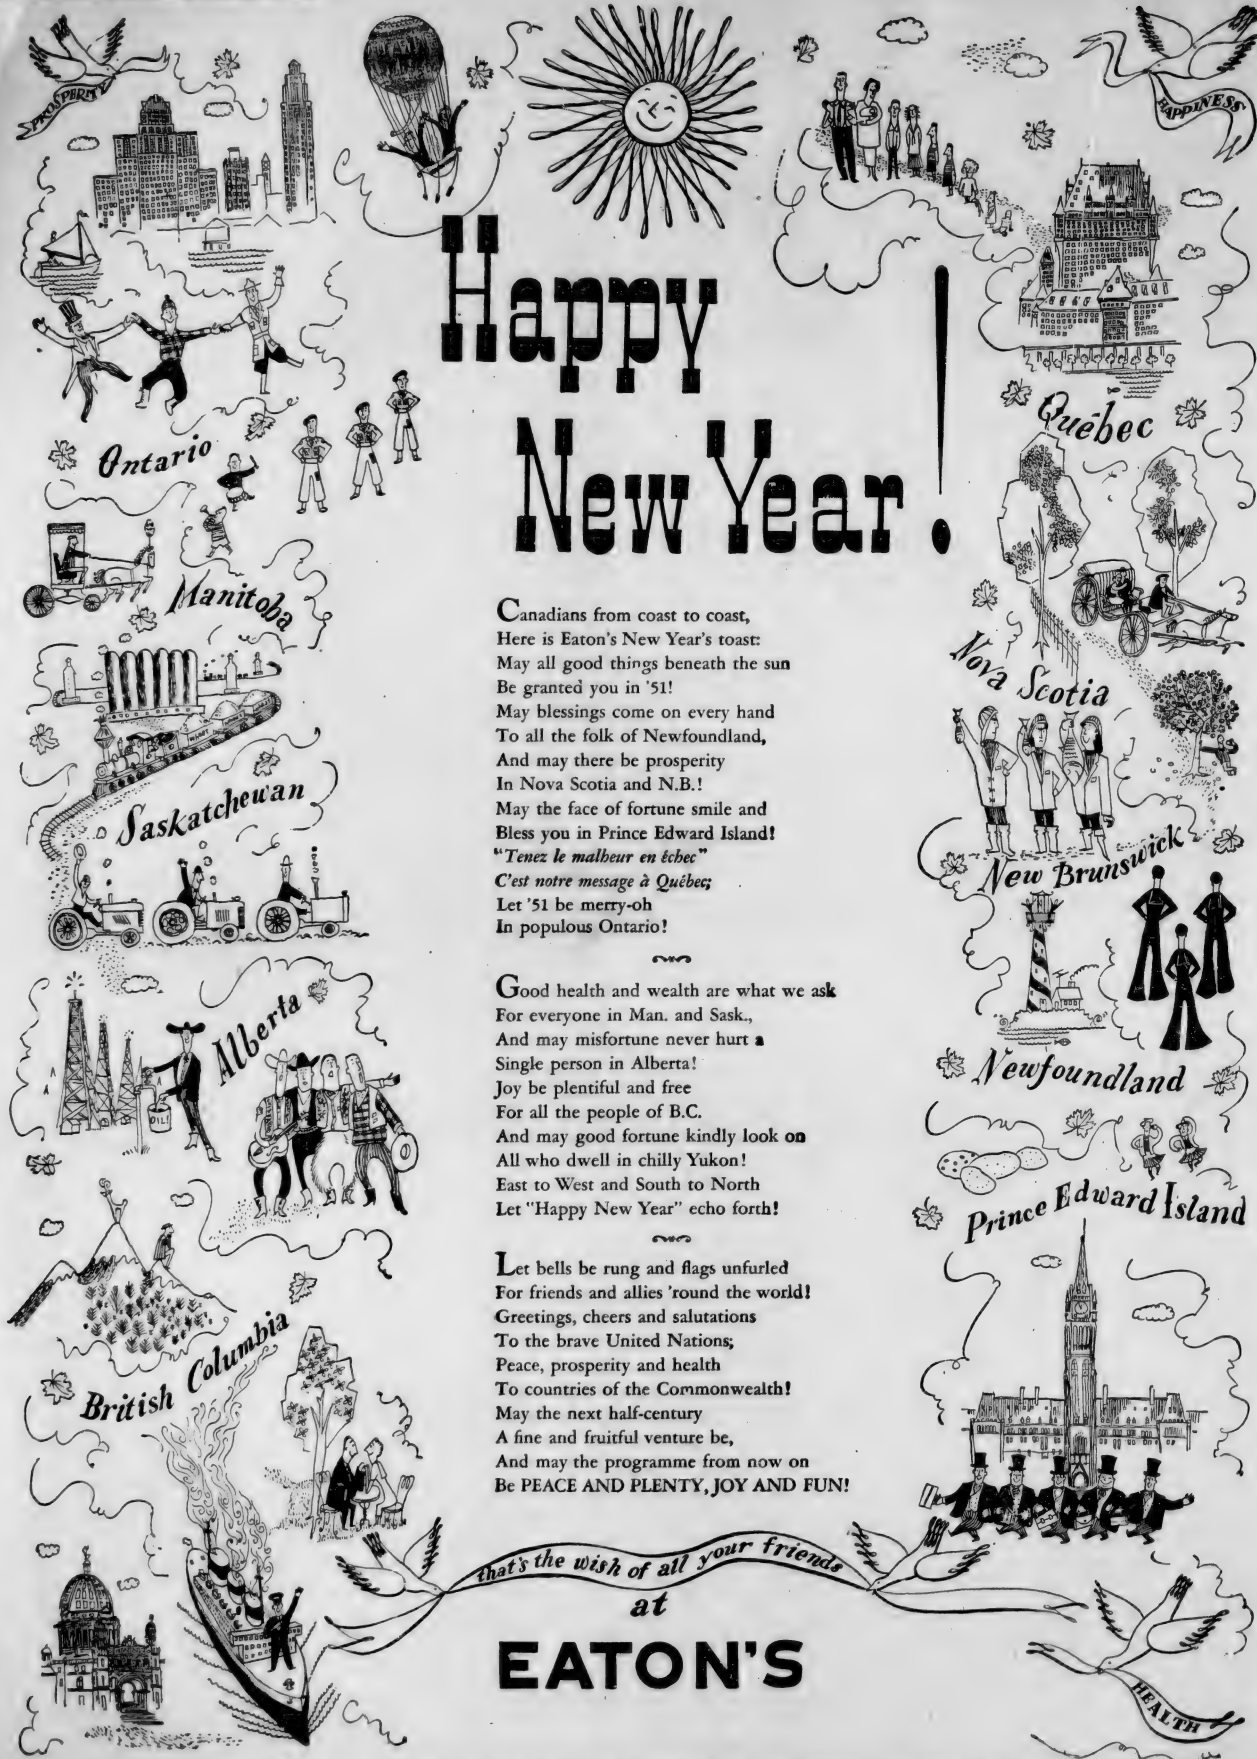 PROSPERITY
HAPPINESS
Happy
New Year!
Ontario
Québec
Manitoba
Nova Scotia
Saskatchewan
New Brunswick
Alberta
OIL!
Newfoundland
Prince Edward Island
British Columbia
Canadians from coast to coast,
Here is Eaton's New Year's toast:
May all good things beneath the sun
Be granted you in '51!
May blessings come on every hand
To all the folk of Newfoundland,
And may there be prosperity
In Nova Scotia and N.B.!
May the face of fortune smile and
Bless you in Prince Edward Island!
"Tenez le malheur en échec"
C'est notre message à Québec;
Let '51 be merry-oh
In populous Ontario!
Good health and wealth are what we ask
For everyone in Man. and Sask.,
And may misfortune never hurt a
Single person in Alberta!
Joy be plentiful and free
For all the people of B.C.
And may good fortune kindly look on
All who dwell in chilly Yukon!
East to West and South to North
Let "Happy New Year" echo forth!
Let bells be rung and flags unfurled
For friends and allies 'round the world!
Greetings, cheers and salutations
To the brave United Nations;
Peace, prosperity and health
To countries of the Commonwealth!
May the next half-century
A fine and fruitful venture be,
And may the programme from now on
Be PEACE AND PLENTY, JOY AND FUN!
that's the wish of all your friends
at
EATON'S
HEALTH